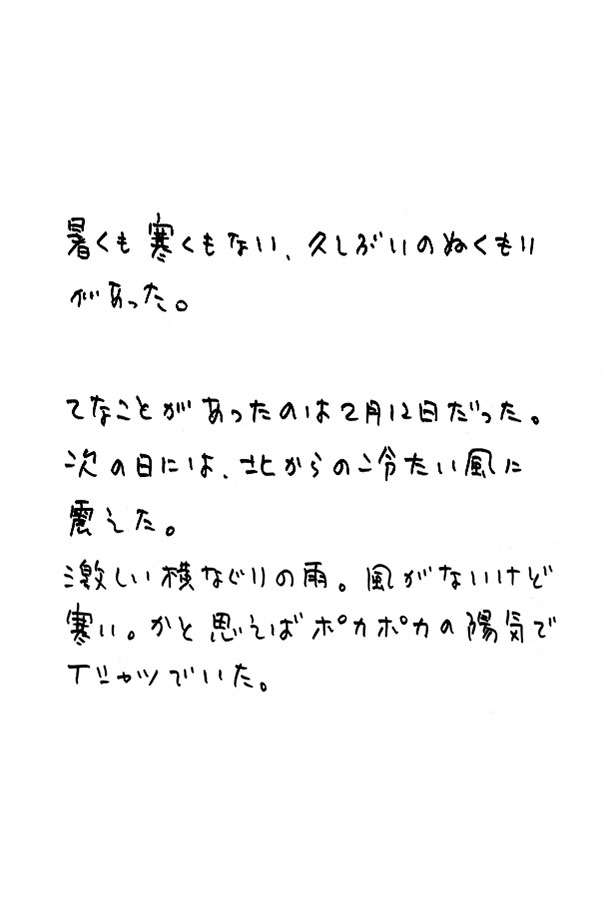 暑くも寒くもない、久しぶりのぬくもり
があった。
てなことがあったのは2月12日だった。
次の日には、北からの冷たい風に
震えた。
激しい横なぐりの雨。風がないけど
寒い。かと思えばポカポカの陽気で
Tシャツでいた。